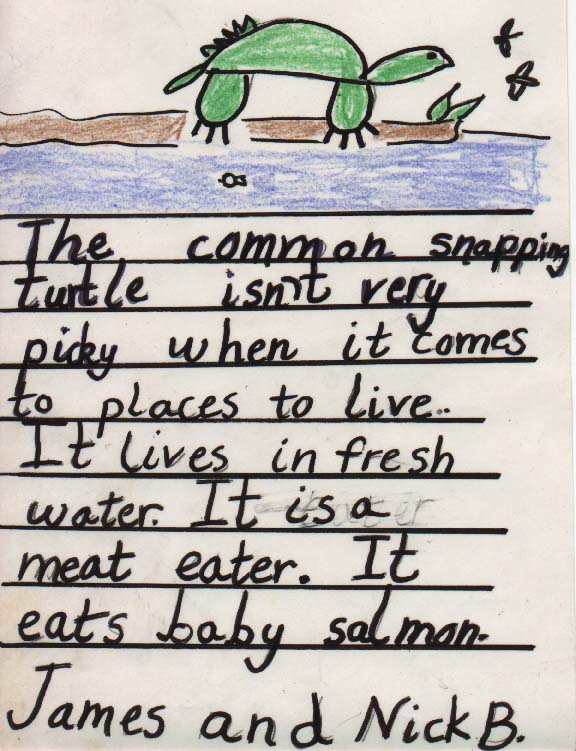 The common snapping
turtle isn't very
picky when it comes
to places to live..
It lives in fresh
water. It is a
meat eater. It
eats baby salmon.
James and Nick B.